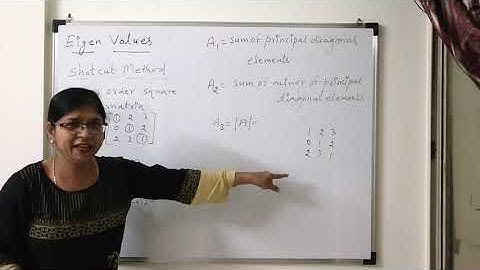 Eigen Values
Shotcut Method
order square
matrix
① 2 3
0 ① 2
2 3 ①
A₁ = sum of principal diagonal
elements
A₂ = sum of minor of principal
diagonal elements
A₃ = |A| =
1 2 3
0 1 2
2 3 1